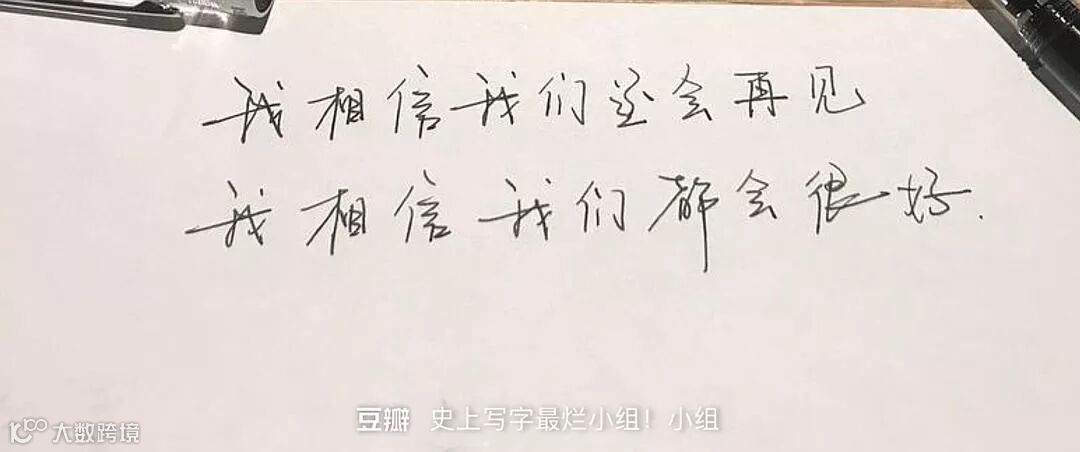 我相信我们还会再见
我相信我们都会很好.
豆瓣 史上写字最烂小组！小组
大数跨境